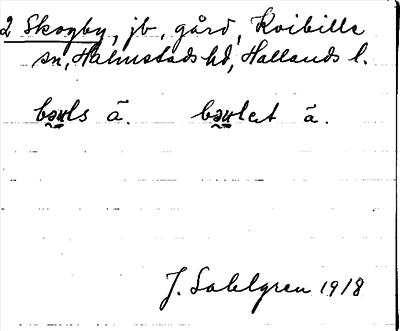 2 Skogby, jb, gård, Kvibille
sn, Halmstads hd, Hallands l.
J. Sahlgren 1918